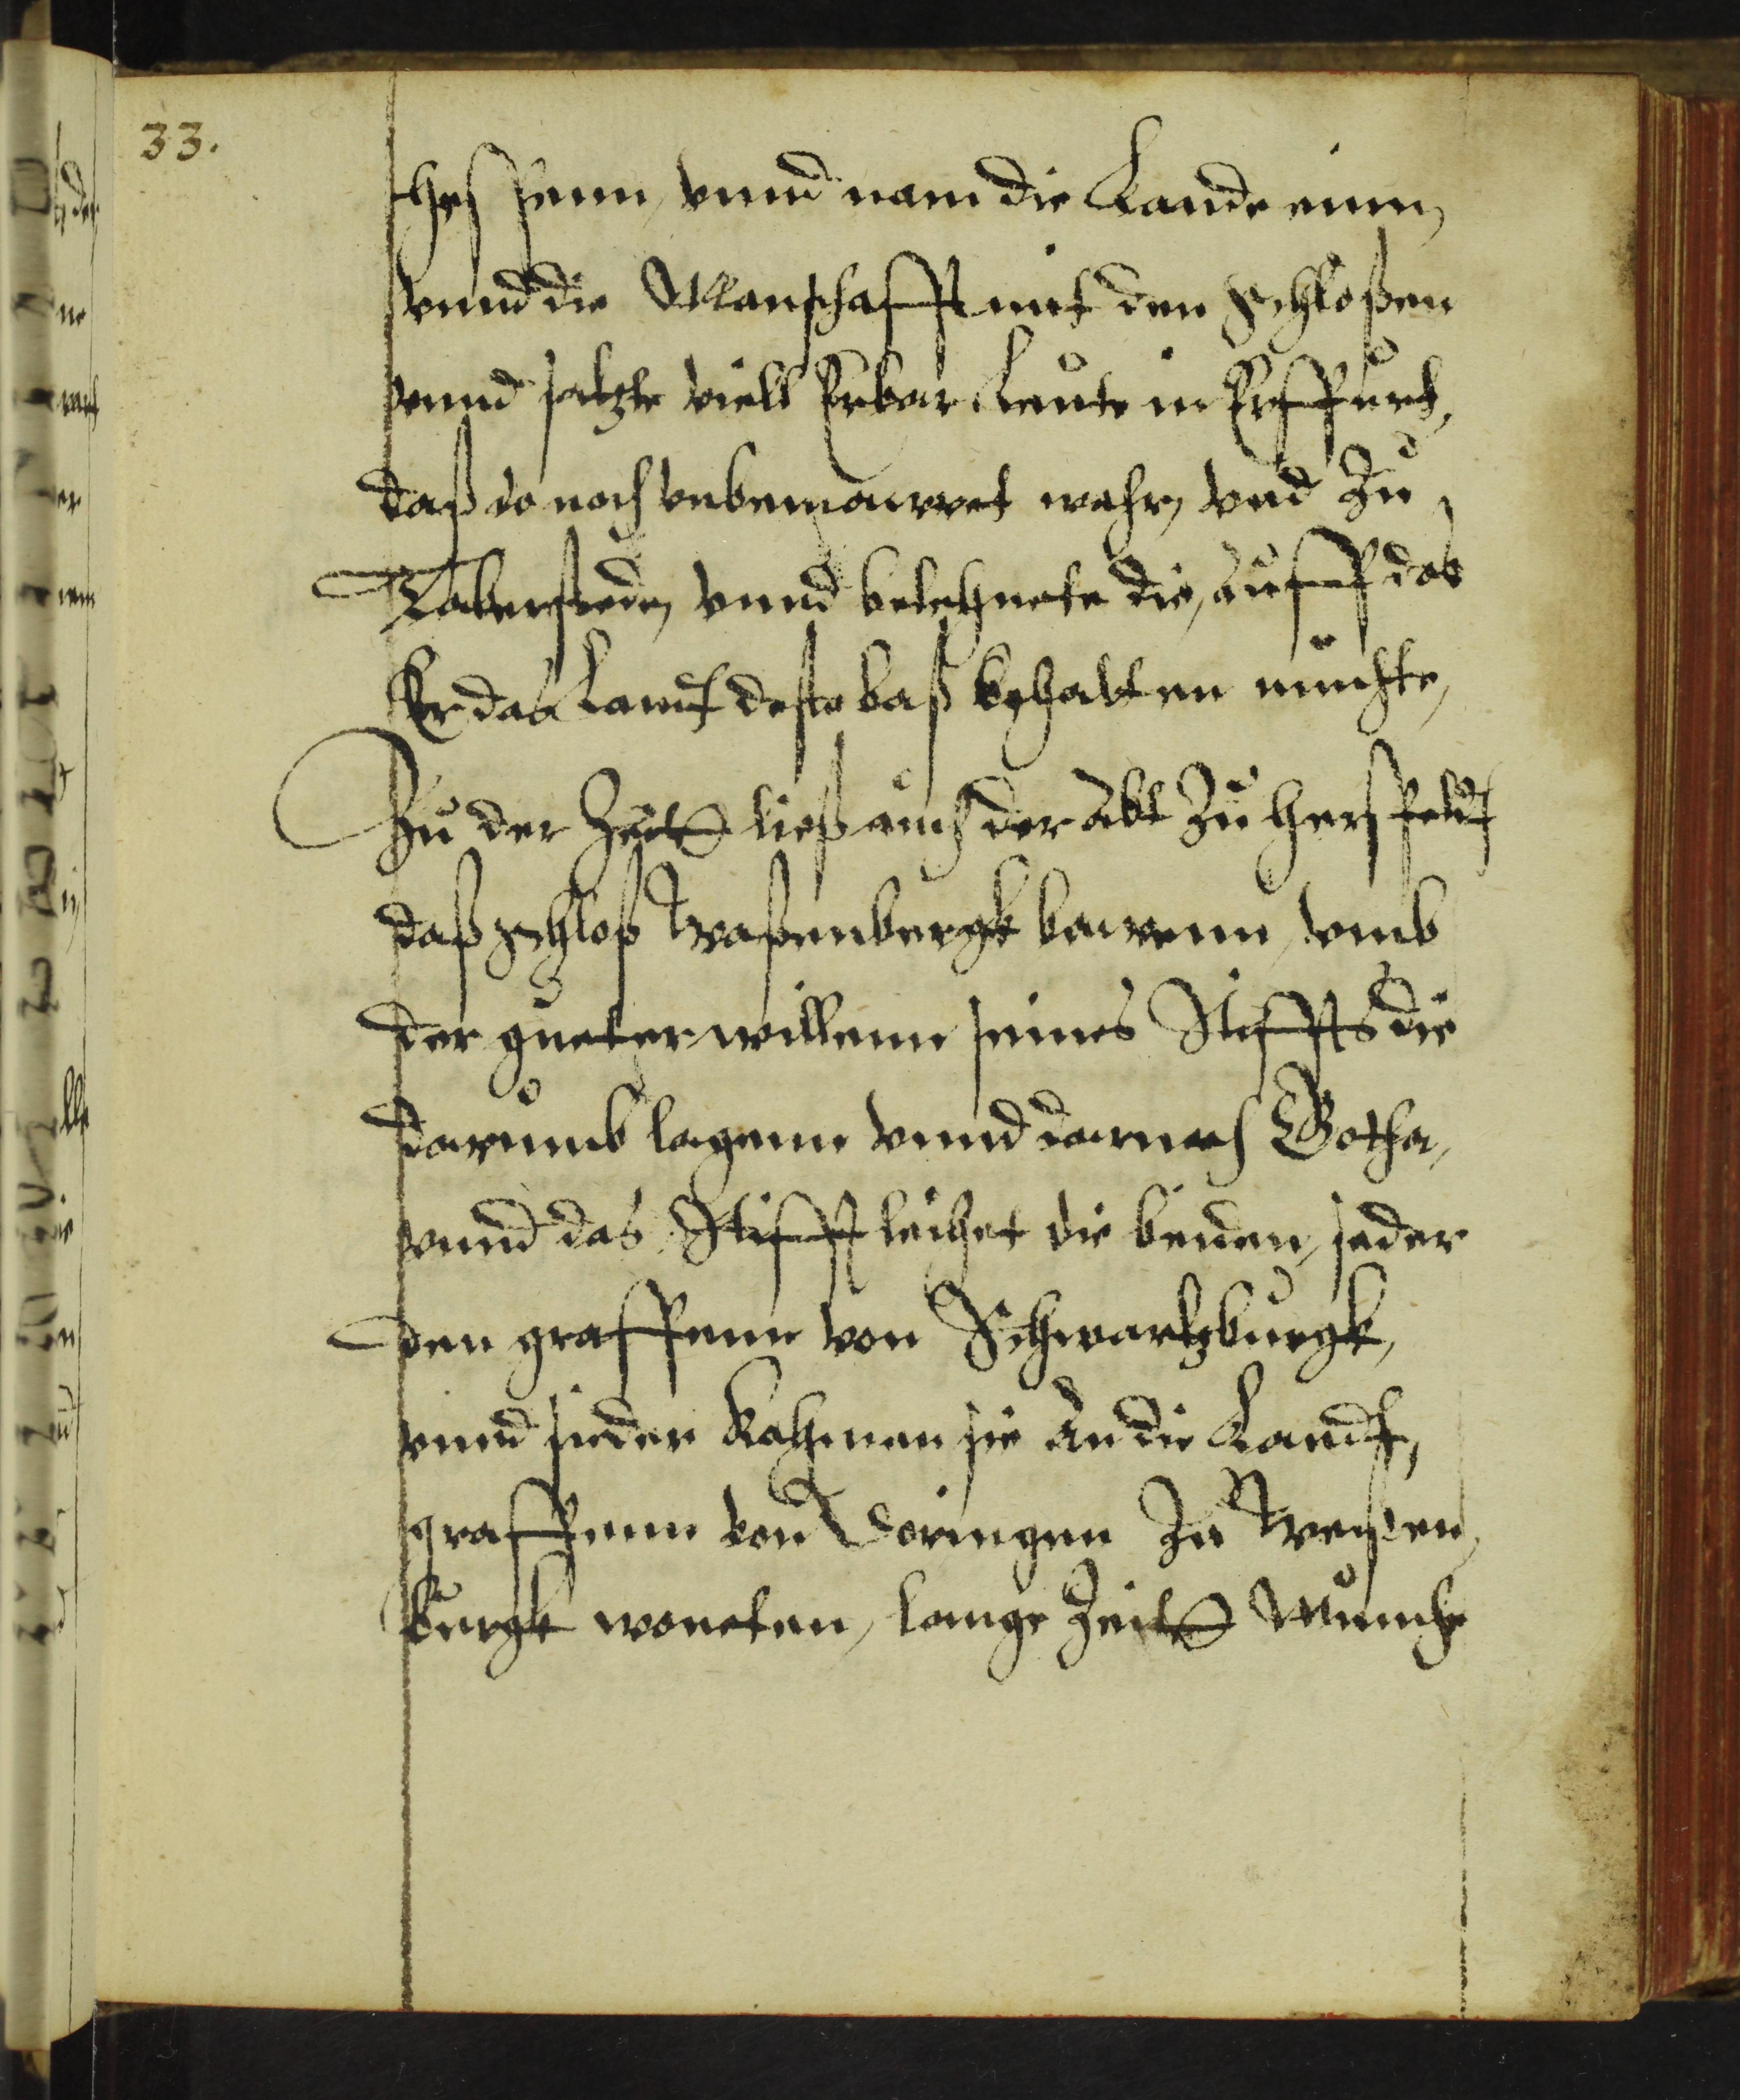 33.
Hessenn, vnnd nam die Lande einn,
vnnd die Manschafft mit den Schloßen
vnnd satzte viell Erbar Leute in Erffurt,
daß do noch vnbemauret wahr, vnd Zu
Taberstedn, vnnd belehnete die, auff das
Er das Landt desto baß behalten muchte,
Zu der Zeit ließ auch der Abt Zu Hersfeldt
daß Schloß Waßenbergk bawenn, vmb
der gueter willenn seines Stiffts die
darumb lagenn vnnd darnach Gotha,
vnnd das Stifft leihet die beiden, seder
den graffenn von Schwartzburgk,
vnnd sieder Kahmen sie an die Landt,
graffenn von Doringen Zu Weßen,
burgk woneten, lange Zeit Munche